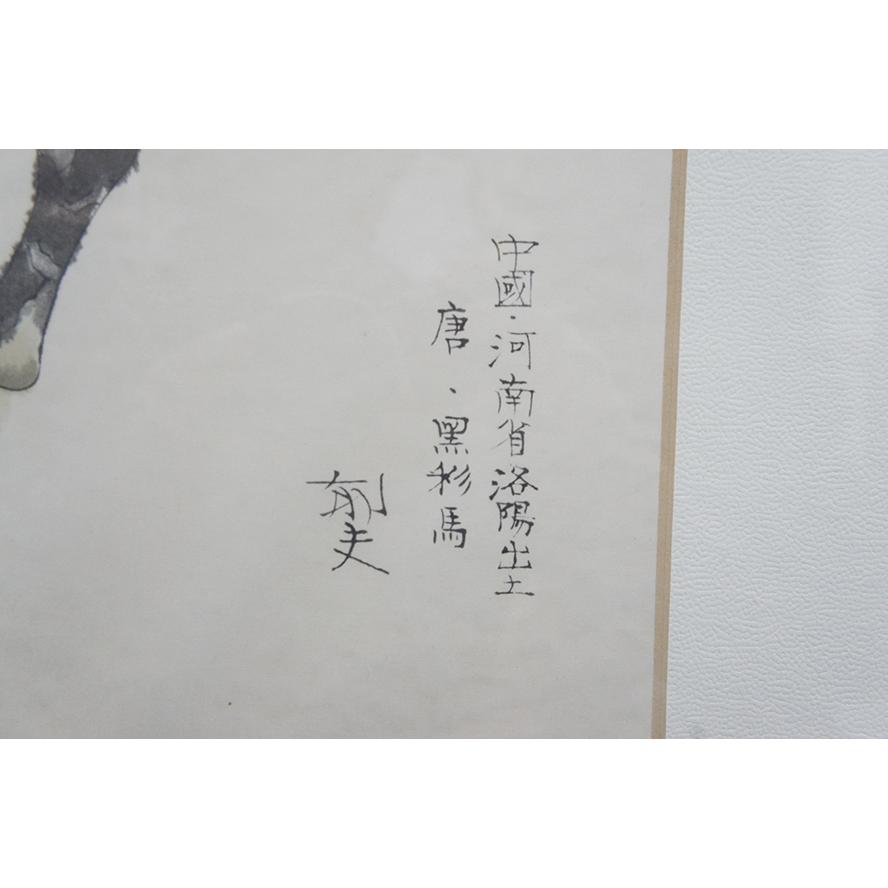 中國・河南省洛陽出土
唐・黑彩馬
郁夫